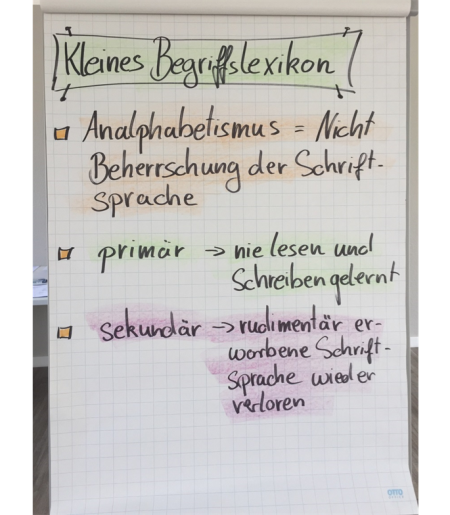 Kleines Begriffslexikon
Analphabetismus = Nicht
Beherrschung der Schrift-
sprache
primär → nie lesen und
Schreiben gelernt
sekundär → rudimentär er-
worbene Schrift-
Sprache wieder
verloren